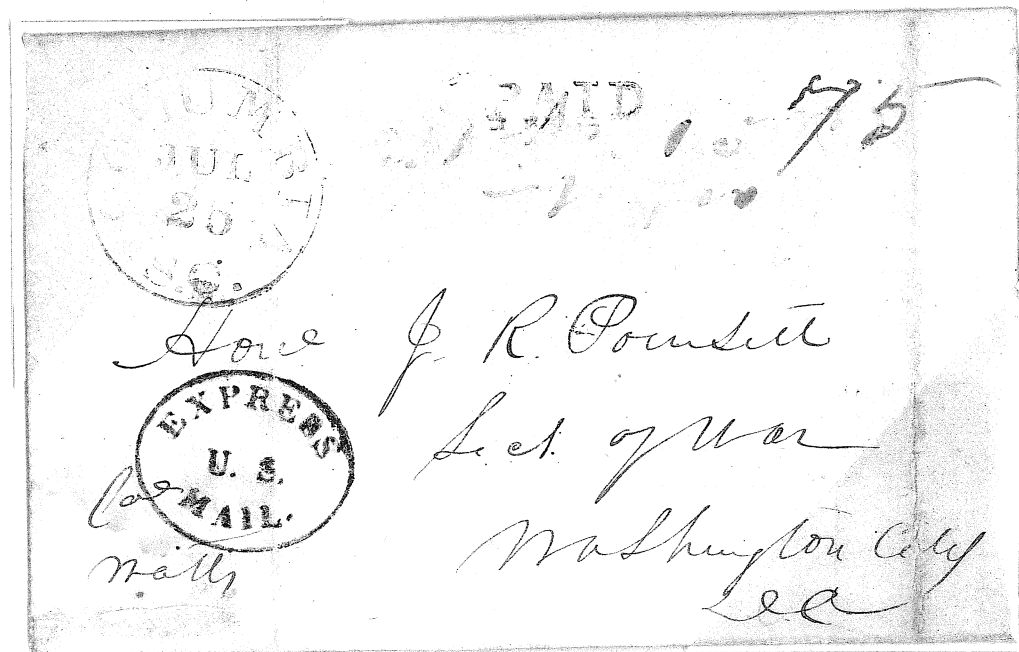 COLUMBIA
JUL
25
S.C.
PAID
75
Hone J. R. Poinsett
Sect. of War
Washington City
D.C.
EXPRESS
U. S.
MAIL.
Col
Watts